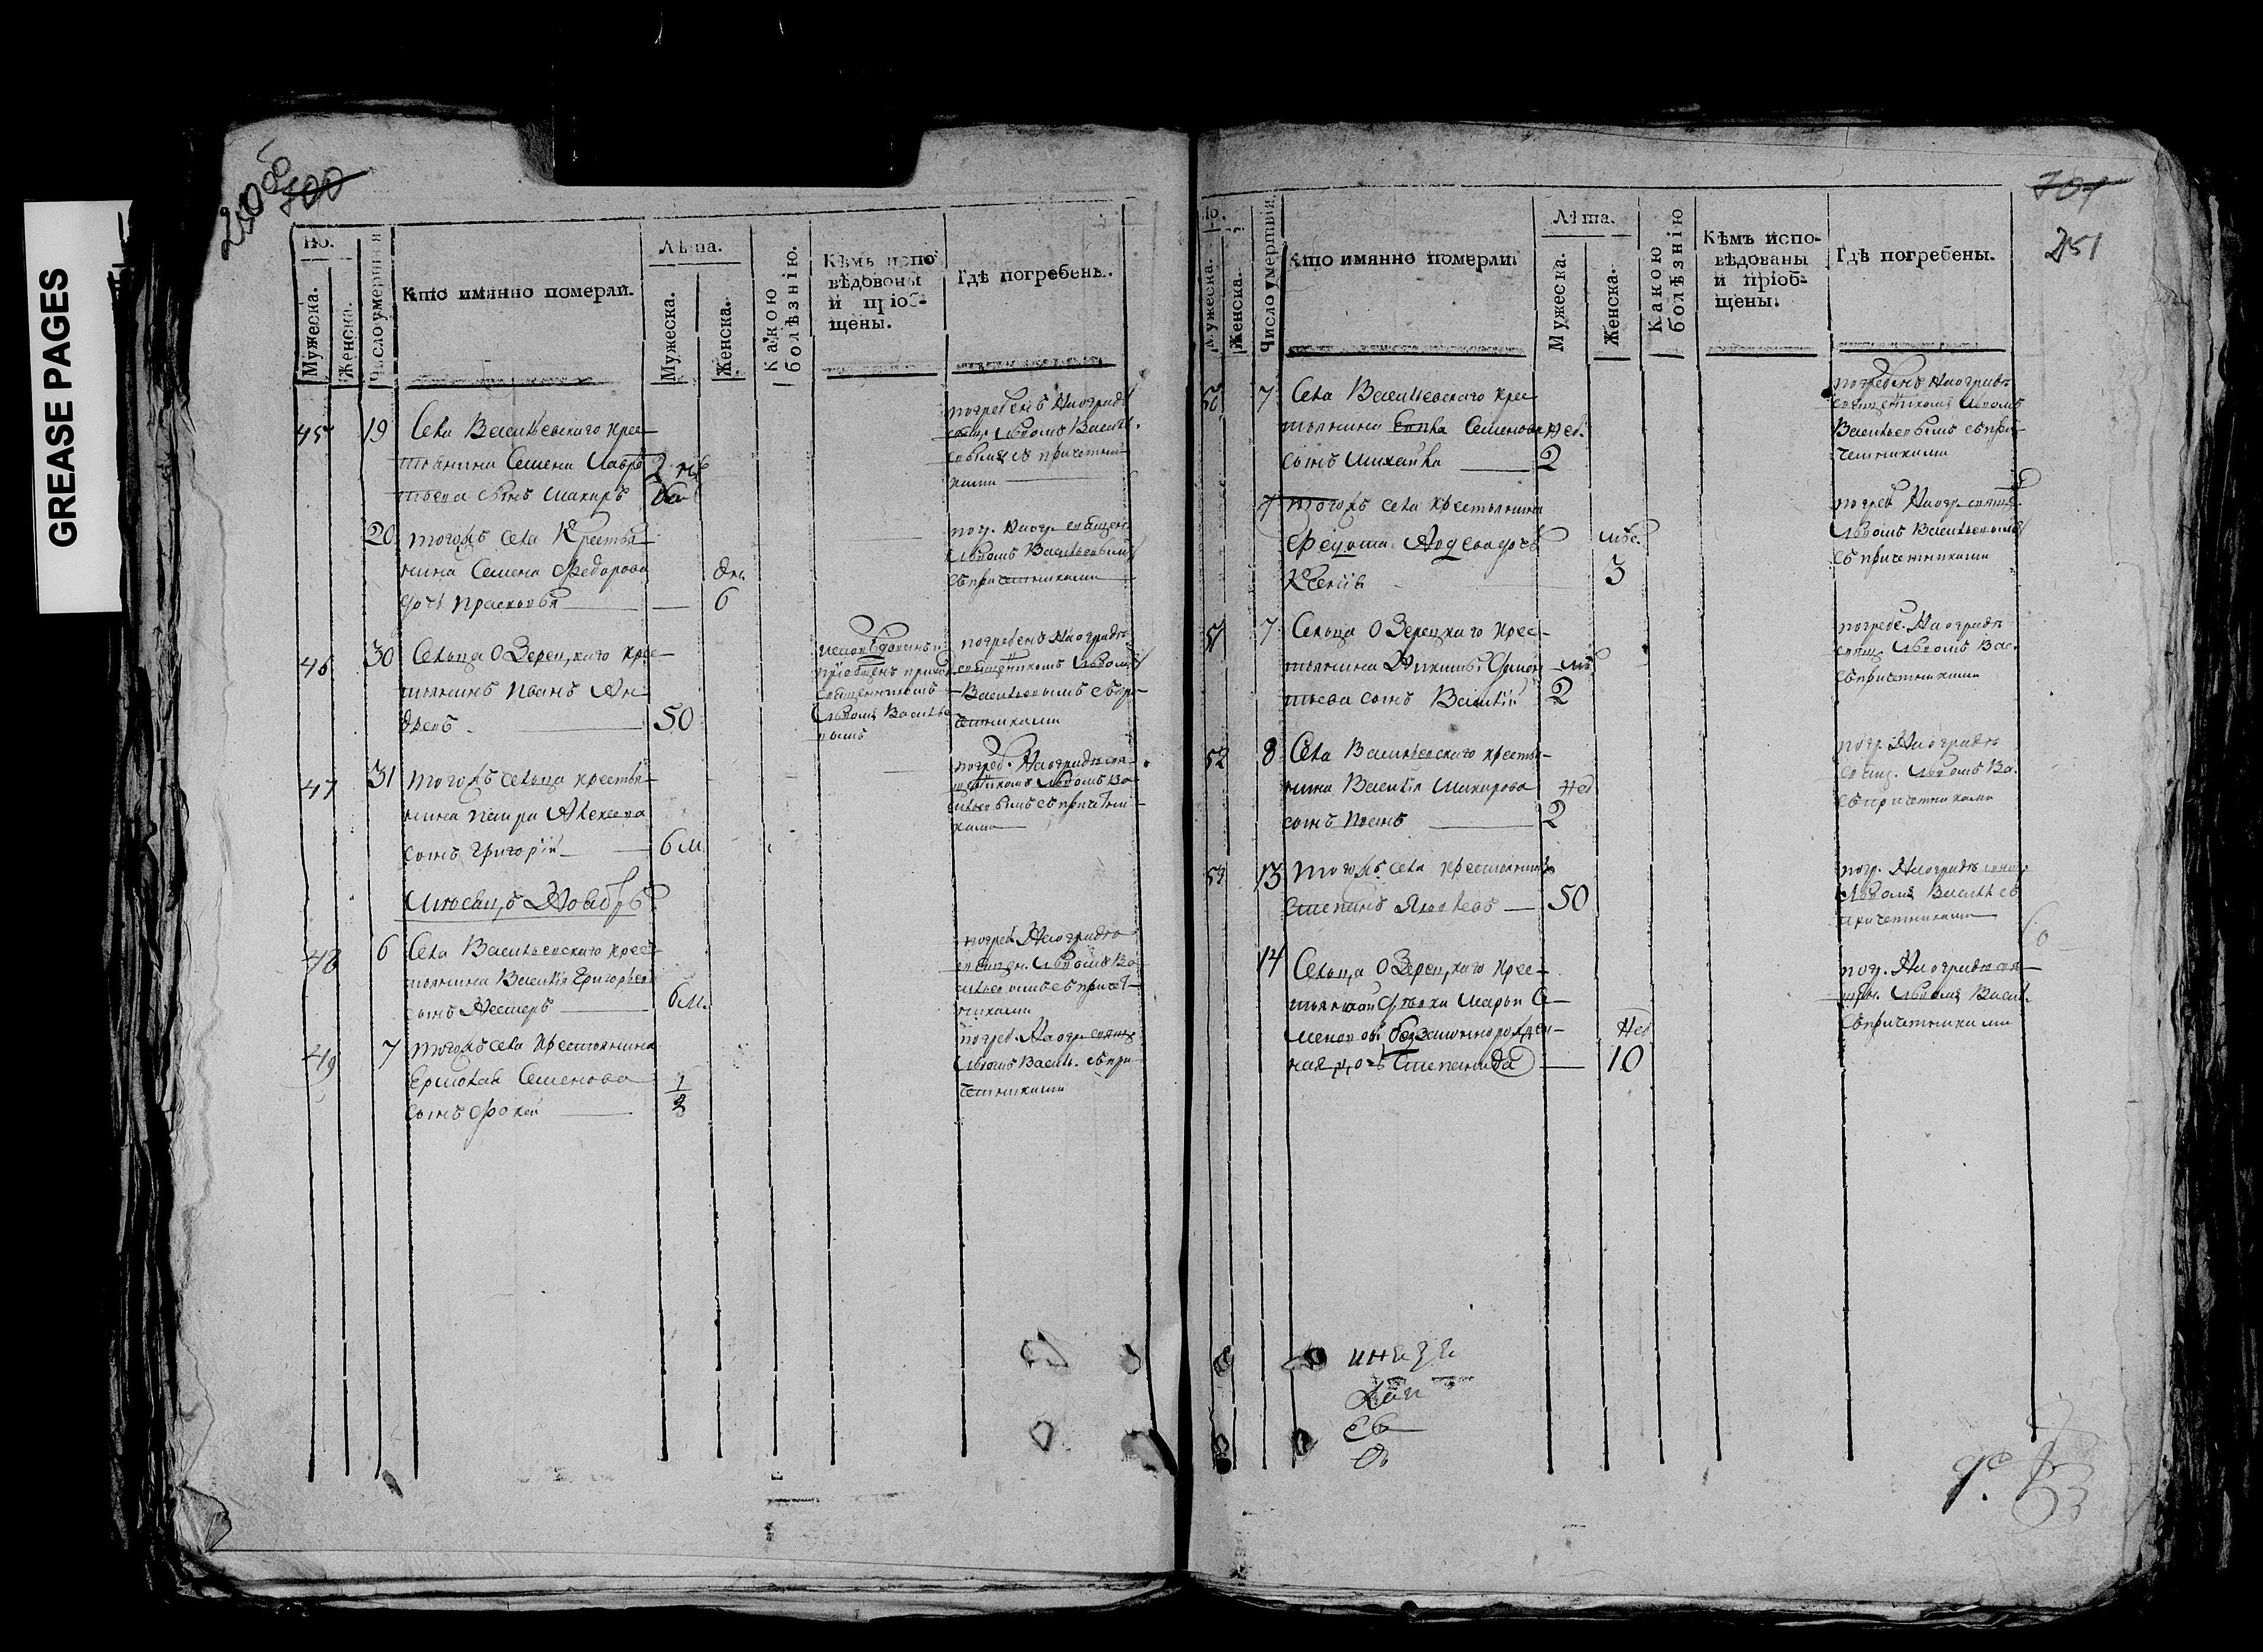 GREASE PAGES
250 об
700
No.
Мужеска.
Женска.
Число умершия
Кто имянно померли.
Лѣта.
Мужеска.
Женска.
Какою болѣзнію.
Кѣмъ испо
вѣдованы
и пріоб-
щены.
Гдѣ погребены.
45 19 Села Васильевскаго крес
тьянина Семена Лавре
тьева сынъ Макаръ 2
погребенъ На оградѣ
свящ. Львомъ Васил.
евымъ съ причетни
ками
20 тогожъ села Крестья
нина Семена Федорова
дочь Прасковья дн. 6
погр. На огр. священ
Львомъ Васильевымъ
съ причетниками
46 30 Сельца Озерецкаго крес
тьянинъ Иванъ Ан
дреевъ 50
исповѣдованъ и
пріобщенъ прихо
священникомъ
Львомъ Василье
вымъ
погребенъ На оградѣ
священникомъ Львомъ
Васильевымъ съ при
четниками
47 31 тогожъ сельца крестья
нина Петра Алексеева
сынъ Григорій 6 м.
погреб. На оградѣ свя
щенникомъ Львомъ Ва
сильевымъ съ причетни
ками
Мѣсяцъ Ноябрь
48 6 Села Васильевскаго крес
тьянина Василія Григорьева
сынъ Нестеръ 6 м.
погреб. На оградѣ
священ. Львомъ Ва
сильевымъ съ причет
никами
49 7 тогожъ села крестьянина
Ермолая Семенова
сынъ Фокей 1/2
погреб. На огр. свящ
Львомъ Васил. съ при
четниками
701
251
No.
Мужеска.
Женска.
Число умершия
Кто имянно померли.
Лѣта.
Мужеска.
Женска.
Какою болѣзнію
Кѣмъ испо-
вѣдованы
и пріоб-
щены.
Гдѣ погребены.
50 7 Села Васильевскаго крес
тьянина Семенова нед.
сынъ Михайла 2
погребенъ На оградѣ
священникомъ Львомъ
Васильевымъ съ при
четниками
7 тогожъ села крестьянина
Федота дочь мѣс.
Ксенія 3
погреб На огр. свящ
Львомъ Васильевымъ
съ причетниками
51 7 Сельца Озерецкаго крес-
тьянина Никиты мѣ
тьева сынъ Василій 2
погребе. На оградѣ
свящ. Львомъ Вас.
съ причетниками
52 8 Села Васильевскаго крестья
нина Василія Макарова нед
сынъ Иванъ 2
погр. На оградѣ
свящ. Львомъ Ва.
съ причетниками
53 13 тогожъ села крестьянинъ
Степанъ Яковлевъ 50
погр. На оградѣ свящ.
Львомъ Васил съ
причетниками
14 Сельца Озерецкаго крес-
тьянской дѣвки Марьи Се
меновой беззаконнорожден нед
ная дочь Степанида 10
погр. На оградѣ свя
щен. Львомъ Васил.
съ причетниками